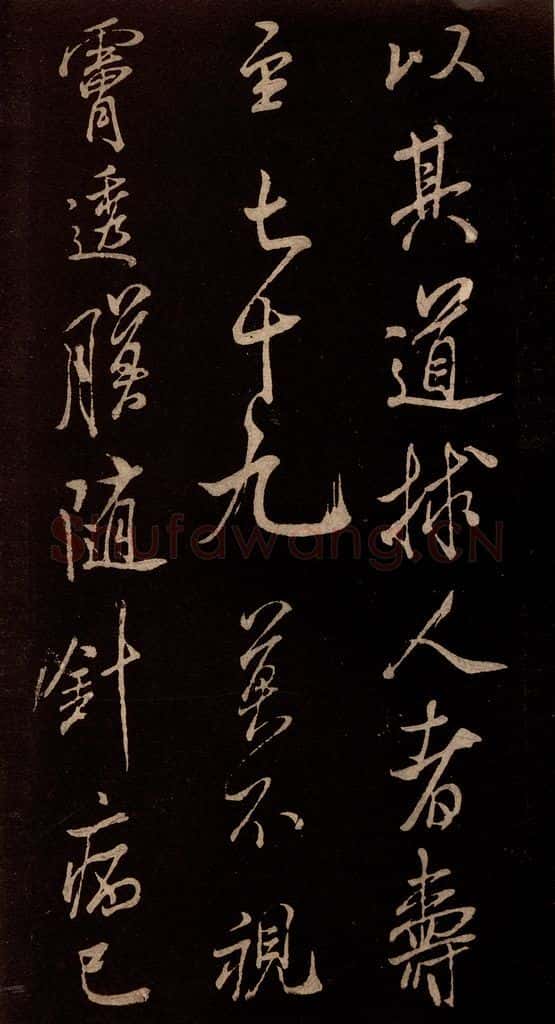 以其道捄人者壽
至七十九莫不視
膚透膜随針病已
Shufawang.CN